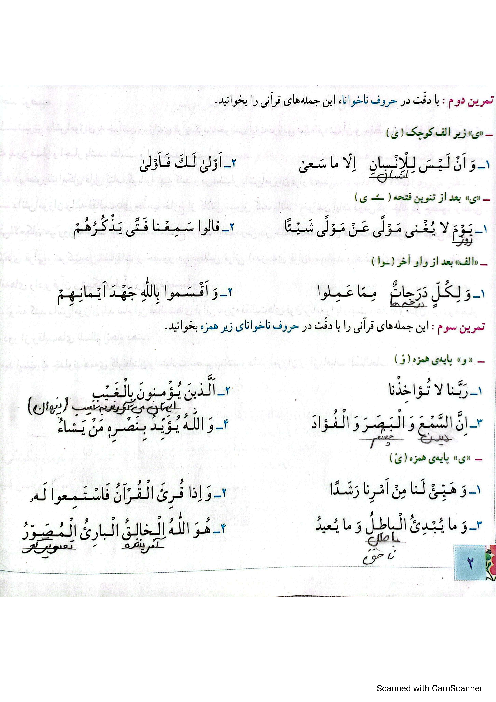 تمرین دوم : با دقّت در حروف ناخوانا، این جمله‌های قرآنی را بخوانید.
ــ «ی» زیر الف کوچک (یٰ)
۱ــ وَ اَنْ لَیْسَ لِلْاِنْسانِ اِلّا ما سَعیٰ
انسان
۲ــ اَوْلیٰ لَکَ فَاَوْلیٰ
ــ «ی» بعد از تنوین فتحه (ـًـ ی)
۱ــ یَوْمَ لا یُغْنی مَوْلًی عَنْ مَوْلًی شَیْئًا
روز
۲ــ قالوا سَمِعْنا فَتًی یَذْکُرُهُمْ
ــ «الف» بعد از واو آخر (ـوا)
۱ــ وَ لِکُلٍّ دَرَجاتٌ مِمّا عَمِلوا
درجه‌ها
۲ــ وَ اَقْسَموا بِاللّٰهِ جَهْدَ اَیْمانِهِمْ
تمرین سوم : این جمله‌های قرآنی را با دقّت در حروف ناخوانای زیر همزه بخوانید.
ــ «و» پایه‌ی همزه (ؤ)
۱ــ رَبَّنا لا تُؤاخِذْنا
۲ــ اَلَّذینَ یُؤْمِنونَ بِالْغَیْبِ
(پنهان)
۳ــ اِنَّ السَّمْعَ وَ الْبَصَرَ وَ الْفُؤادَ
چشم
۴ــ وَ اللّٰهُ یُؤَیِّدُ بِنَصْرِهٖ مَنْ یَشاءُ
ــ «ی» پایه‌ی همزه (ئ)
۱ــ وَ هَیِّئْ لَنا مِنْ اَمْرِنا رَشَدًا
۲ــ وَ اِذا قُرِئَ الْقُرْآنُ فَاسْتَمِعوا لَهٗ
۳ــ وَ ما یُبْدِئُ الْباطِلُ وَ ما یُعیدُ
باطل
ناحق
۴ــ هُوَ اللّٰهُ الْخالِقُ الْبارِئُ الْمُصَوِّرُ
آفریننده
۲
Scanned with CamScanner